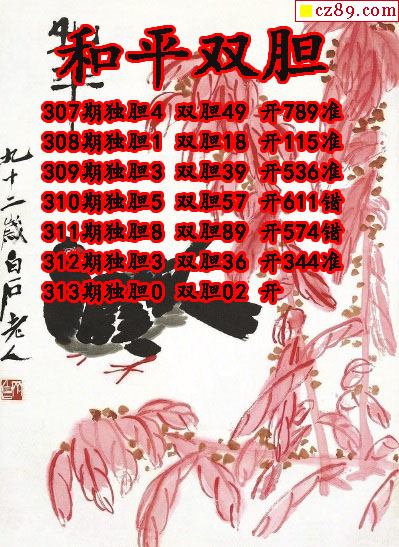 cz89.com
和平双胆
307期独胆4 双胆49 开789准
308期独胆1 双胆18 开115准
309期独胆3 双胆39 开536准
310期独胆5 双胆57 开611错
311期独胆8 双胆89 开574错
312期独胆3 双胆36 开344准
313期独胆0 双胆02 开
九十二岁白石老人